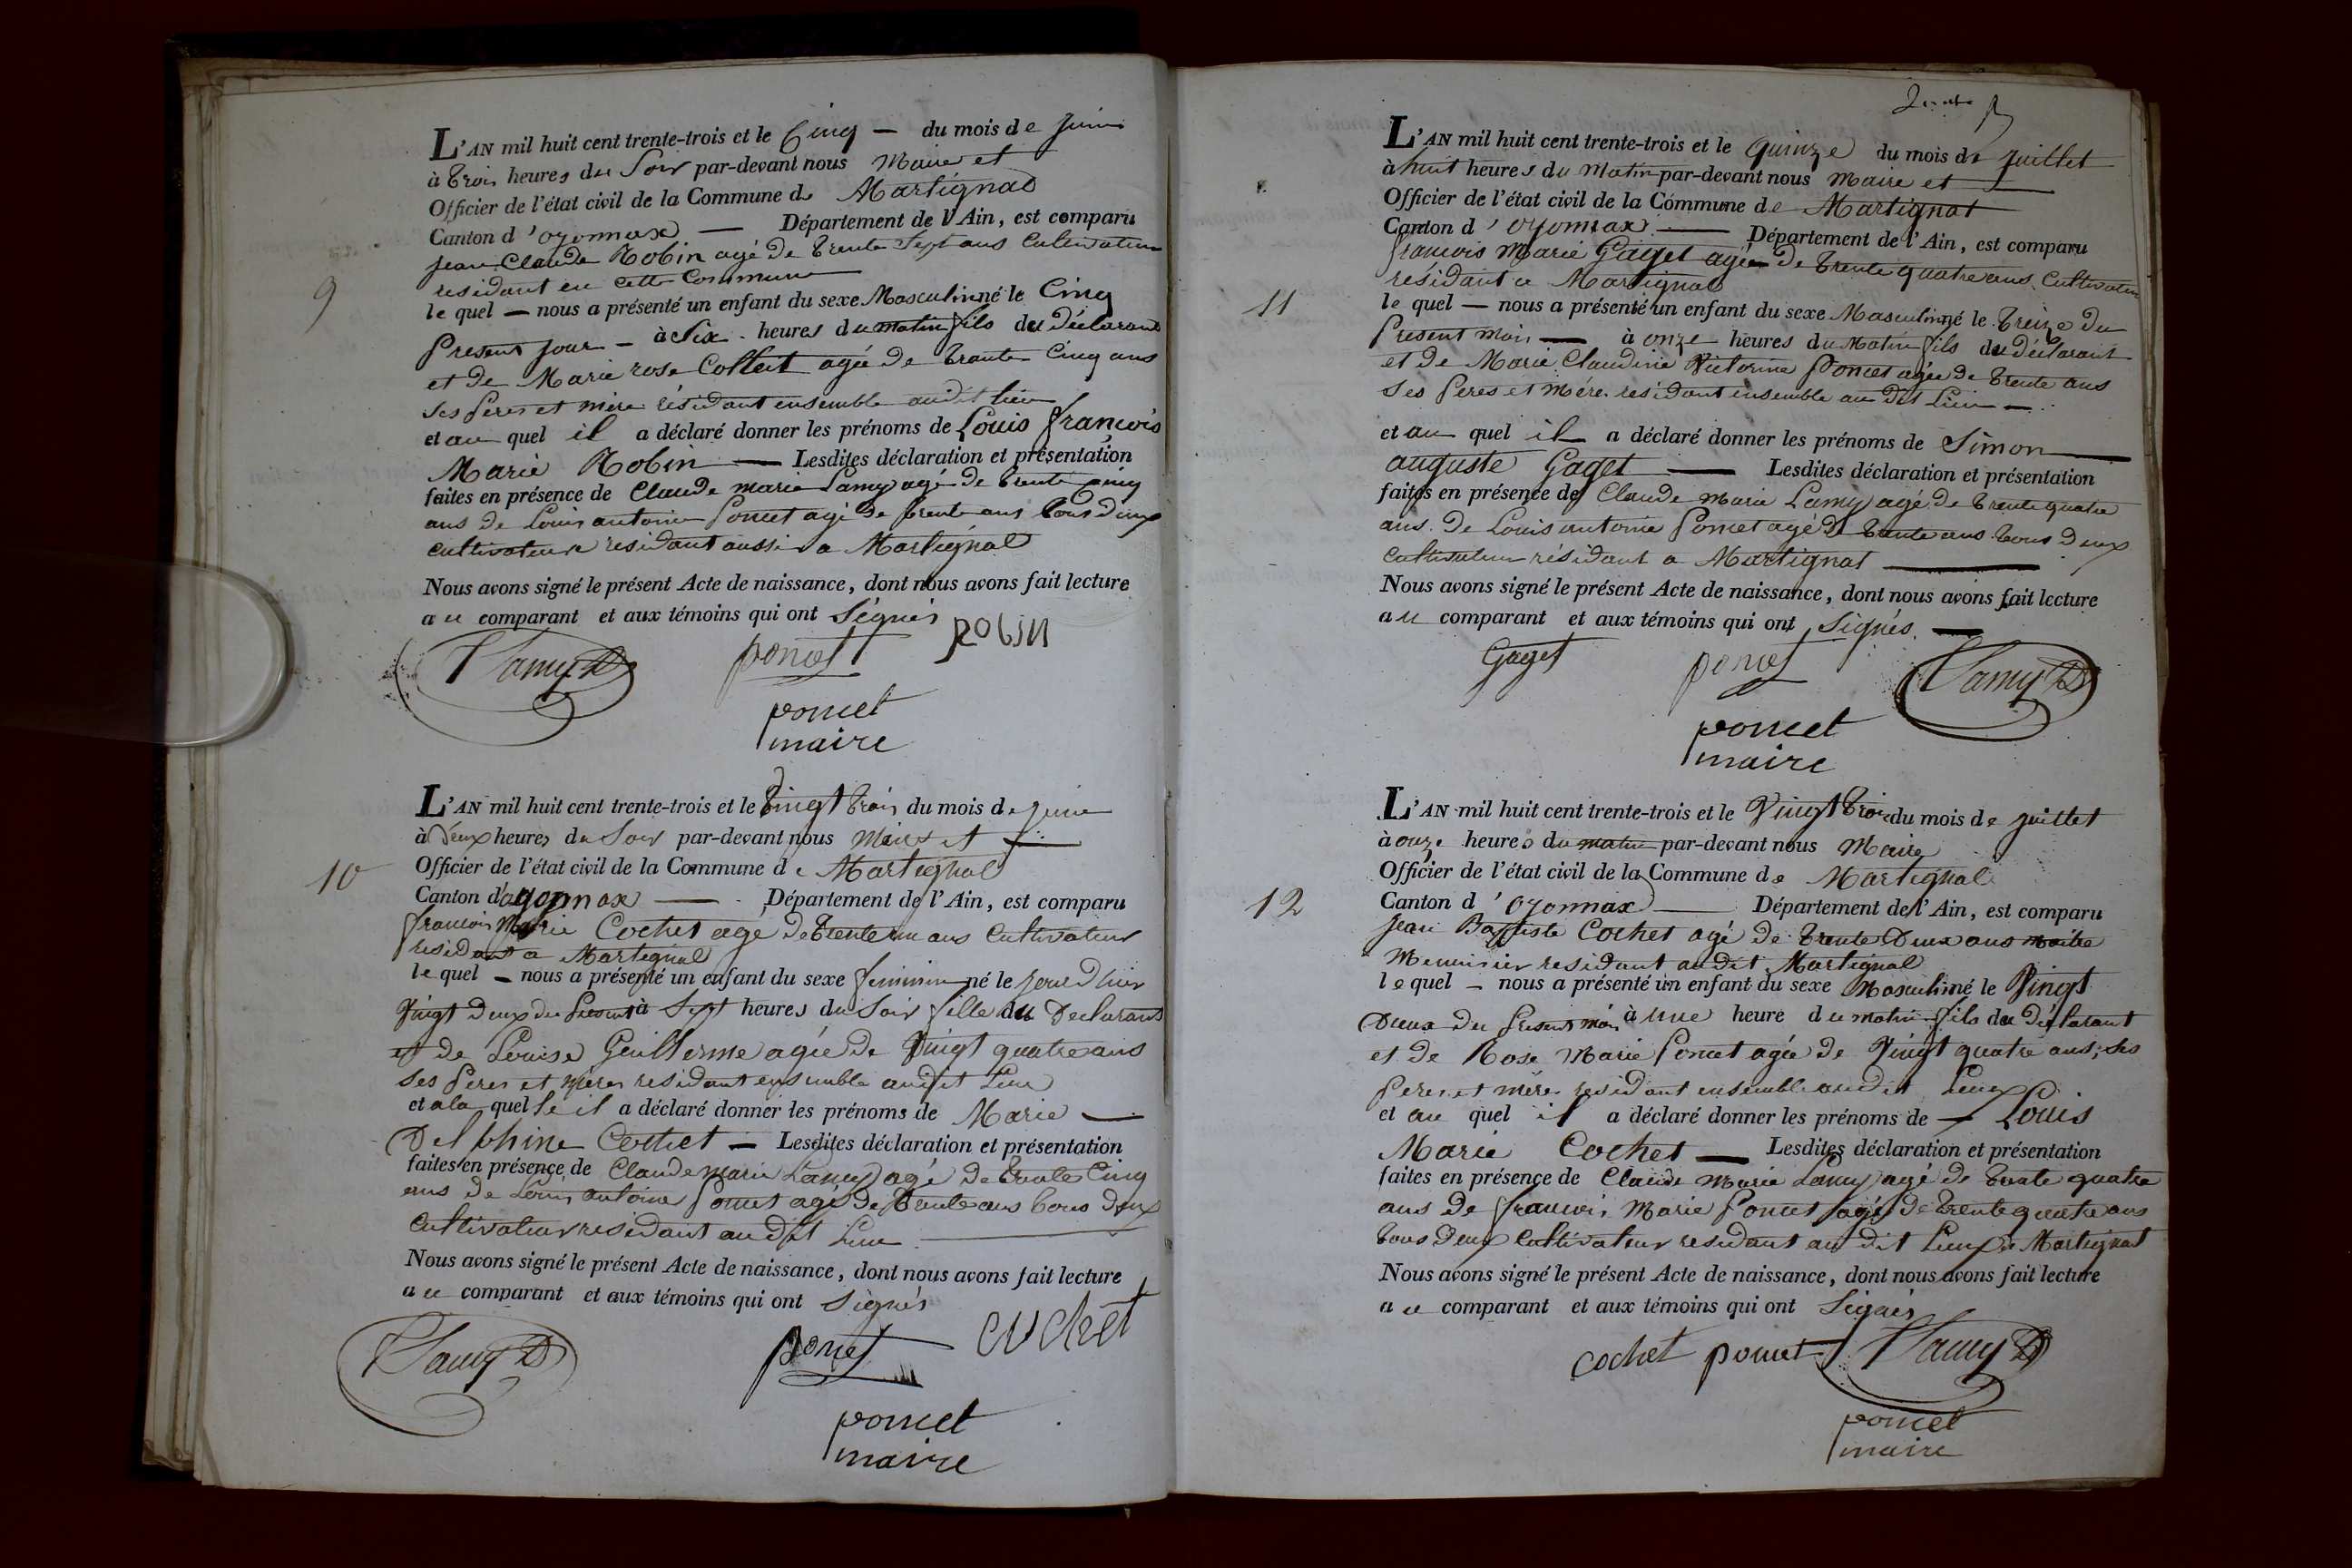 L'AN mil huit cent trente-trois et le Cinq — du mois de juin
à trois heures du Soir par-devant nous Maire et
Officier de l'état civil de la Commune de Martignat
Canton d'oyonnax — Département de l'Ain, est comparu
jean Claude Robin agé de trente Sept ans Cultivateur
residant en cette Commune
9
le quel — nous a présenté un enfant du sexe Masculin né le Cinq
present jour — à Six heures du matin fils du déclarant
et de Marie rose Collet agée de trante Cinq ans
Ses peres et mère résidant ensemble audit lieu
et au quel il a déclaré donner les prénoms de Louis françois
Marie Robin — Lesdites déclaration et présentation
faites en présence de Claude marie Lamy agé de trente cinq
ans de Louis antoine Poncet agé de trente ans tous deux
cultivateur residant aussi a Martignat
Nous avons signé le présent Acte de naissance, dont nous avons fait lecture
au comparant et aux témoins qui ont Signés
Lamy poncet Robin
poncet
maire
L'AN mil huit cent trente-trois et le vingt trois du mois de juin
à Deux heures du Soir par-devant nous Maire et
10
Officier de l'état civil de la Commune de Martignat
Canton d'oyonnax — Département de l'Ain, est comparu
francois Marie Cochet agé de trente un ans Cultivateur
residant a Martignat
le quel — nous a présenté un enfant du sexe feminin né le jour d'hier
Vingt deux du present à Sept heures du Soir fille du Declarant
et de Louise Guillerme agée de Vingt quatre ans
Ses peres et mères residant ensemble audit Lieu
et a la quelle il a déclaré donner les prénoms de Marie —
Delphine Cochet — Lesdites déclaration et présentation
faites en présence de Claude marie Lamy agé de trente Cinq
ans de Louis antoine Poncet agé de trente ans tous deux
Cultivateur residant au dit Lieu
Nous avons signé le présent Acte de naissance, dont nous avons fait lecture
au comparant et aux témoins qui ont Signés
Lamy poncet cochet
poncet
maire
L'AN mil huit cent trente-trois et le quinze du mois de juillet
à huit heures du Matin par-devant nous Maire et
Officier de l'état civil de la Commune de Martignat
Canton d'oyonnax — Département de l'Ain, est comparu
francois Marie Gaget agée de trente quatre ans Cultivateur
residant a Martignat
11
le quel — nous a présenté un enfant du sexe Masculin né le treize du
present mois — à onze heures du Matin fils du déclarant
et de Marie Claudine Victorine Poncet agée de trente ans
Ses peres et mére residant ensemble au dit Lieu —
et au quel il a déclaré donner les prénoms de Simon
auguste Gaget — Lesdites déclaration et présentation
faites en présence de Claude Marie Lamy agé de trente quatre
ans de Louis antoine Poncet agé de trente ans tous deux
Cultivateur résidant a Martignat
Nous avons signé le présent Acte de naissance, dont nous avons fait lecture
au comparant et aux témoins qui ont Signés. —
Gaget poncet Lamy
poncet
maire
L'AN mil huit cent trente-trois et le Vingt trois du mois de juillet
à onze heures du matin par-devant nous Maire
Officier de l'état civil de la Commune de Martignat
12
Canton d'oyonnax — Département de l'Ain, est comparu
jean Baptiste Cochet agé de trente Deux ans maitre
Menuisier residant audit Martignat
le quel — nous a présenté un enfant du sexe Masculin né le Vingt
Deux du present mois à une heure du matin fils du déclarant
et de Rose Marie Poncet agée de Vingt quatre ans, Ses
peres et mère residant ensemble audit Lieu
et au quel il a déclaré donner les prénoms de — Louis
Marie Cochet — Lesdites déclaration et présentation
faites en présence de Claude Marie Lamy agé de trente quatre
ans de francois Marie Poncet agé de trente quatre ans
tous deux Cultivateur residant au dit Lieu de Martignat
Nous avons signé le présent Acte de naissance, dont nous avons fait lecture
au comparant et aux témoins qui ont Signés
cochet poncet Lamy
poncet
maire